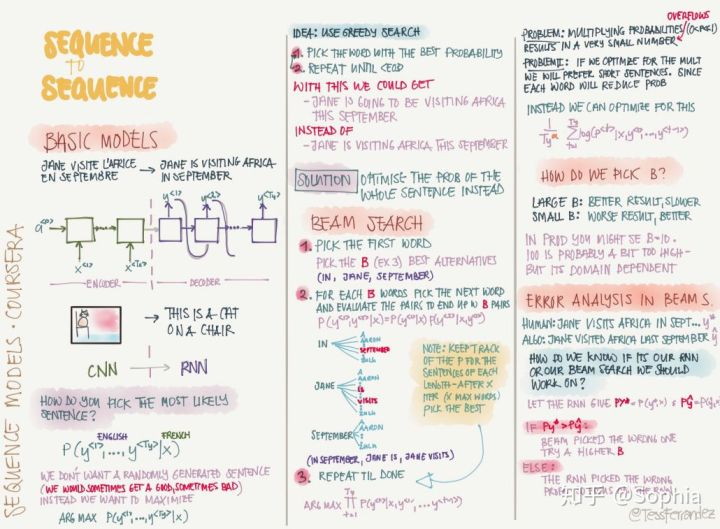 SEQUENCE
TO
SEQUENCE
BASIC MODELS
JANE VISITE L'AFRICE
EN SEPTEMBRE
JANE IS VISITING AFRICA
IN SEPTEMBER
y<1> y<2> y<Ty>
a<0>
x<1> x<Tx>
ENCODER DECODER
THIS IS A CAT
ON A CHAIR
CNN RNN
HOW DO YOU PICK THE MOST LIKELY
SENTENCE?
ENGLISH FRENCH
P(y<1>,...,y<Ty>|x)
WE DON'T WANT A RANDOMLY GENERATED SENTENCE
(WE WOULD SOMETIMES GET A GOOD, SOMETIMES BAD)
INSTEAD WE WANT TO MAXIMIZE
ARG MAX P(y<1>,...,y<Ty>|x)
SEQUENCE MODELS · COURSERA
IDEA: USE GREEDY SEARCH
1. PICK THE WORD WITH THE BEST PROBABILITY
2. REPEAT UNTIL <EOS>
WITH THIS WE COULD GET
- JANE IS GOING TO BE VISITING AFRICA
THIS SEPTEMBER
INSTEAD OF
- JANE IS VISITING AFRICA THIS SEPTEMBER
SOLUTION OPTIMISE THE PROB OF THE
WHOLE SENTENCE INSTEAD
BEAM SEARCH
1. PICK THE FIRST WORD
PICK THE B (EX 3) BEST ALTERNATIVES
(IN, JANE, SEPTEMBER)
2. FOR EACH B WORDS PICK THE NEXT WORD
AND EVALUATE THE PAIRS TO END UP W B PAIRS
P(y<1>,y<2>|x) = P(y<1>|x) P(y<2>|x,y<1>)
IN
A
AARON
SEPTEMBER
ZULU
JANE
A
AARON
IS
VISITS
ZULU
SEPTEMBER
A
AARON
ZULU
NOTE: KEEP TRACK
OF THE P FOR THE
SENTENCES OF EACH
LENGTH - AFTER X
ITER (X MAX WORDS)
PICK THE BEST
(IN SEPTEMBER, JANE IS, JANE VISITS)
3. REPEAT TIL DONE
PROBLEM: MULTIPLYING PROBABILITIES (0<P<<1)
OVERFLOWS
RESULTS IN A VERY SMALL NUMBER
PROBLEM II: IF WE OPTIMIZE FOR THE MULT
WE WILL PREFER SHORT SENTENCES. SINCE
EACH WORD WILL REDUCE PROB
INSTEAD WE CAN OPTIMIZE FOR THIS
HOW DO WE PICK B?
LARGE B: BETTER RESULT, SLOWER
SMALL B: WORSE RESULT, BETTER
IN PROD YOU MIGHT SE B=10.
100 IS PROBABLY A BIT TOO HIGH -
BUT ITS DOMAIN DEPENDENT
ERROR ANALYSIS IN BEAM S.
HUMAN: JANE VISITS AFRICA IN SEPT... y*
ALGO: JANE VISITED AFRICA LAST SEPTEMBER ŷ
HOW DO WE KNOW IF ITS OUR RNN
OR OUR BEAM SEARCH WE SHOULD
WORK ON?
LET THE RNN GIVE
IF Py* > Pŷ:
BEAM PICKED THE WRONG ONE
TRY A HIGHER B
ELSE:
THE RNN PICKED THE WRONG
知乎 @Sophia
@TessFerrandez